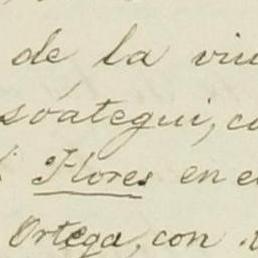 de la viu
soátegui, co
Flores en e
Ortega, con